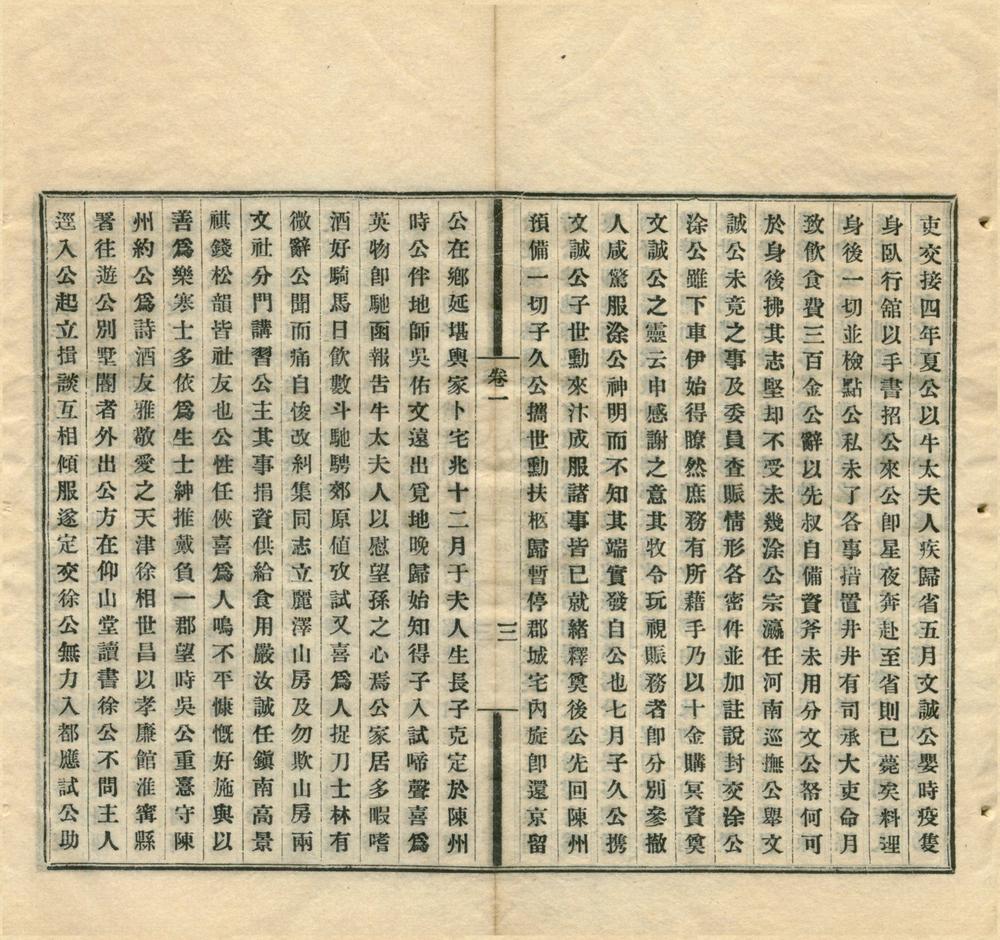 吏交接四年夏公以牛太夫人疾歸省五月文誠公嬰時疫隻
身臥行館以手書招公來公卽星夜奔赴至省則已薨矣料理
身後一切並檢點公私未了各事措置井井有司承大吏命月
致飲食費三百金公辭以先叔自備資斧未用分文公帑何可
於身後拂其志堅却不受未幾涂公宗瀛任河南巡撫公舉文
誠公未竟之事及委員查賑情形各密件並加註說封交涂公
涂公雖下車伊始得瞭然庶務有所藉手乃以十金購冥資奠
文誠公之靈云申感謝之意其牧令玩視賑務者卽分別參撤
人咸驚服涂公神明而不知其端實發自公也七月子久公携
文誠公子世勳來汴成服諸事皆已就緒釋奠後公先回陳州
預備一切子久公攜世勳扶柩歸暫停郡城宅內旋卽還京留
卷一
三
公在鄉延堪輿家卜宅兆十二月于夫人生長子克定於陳州
時公伴地師吳佑文遠出覓地晚歸始知得子入試啼聲喜爲
英物卽馳函報告牛太夫人以慰望孫之心焉公家居多暇嗜
酒好騎馬日飲數斗馳騁郊原値攷試又喜爲人捉刀士林有
微辭公聞而痛自悛改糾集同志立麗澤山房及勿欺山房兩
文社分門講習公主其事捐資供給食用嚴汝誠任鎭南高景
祺錢松韻皆社友也公性任俠喜爲人鳴不平慷慨好施與以
善爲樂寒士多依爲生士紳推戴負一郡望時吳公重憙守陳
州約公爲詩酒友雅敬愛之天津徐相世昌以孝廉館淮寧縣
署往遊公別墅閽者外出公方在仰山堂讀書徐公不問主人
逕入公起立揖談互相傾服遂定交徐公無力入都應試公助